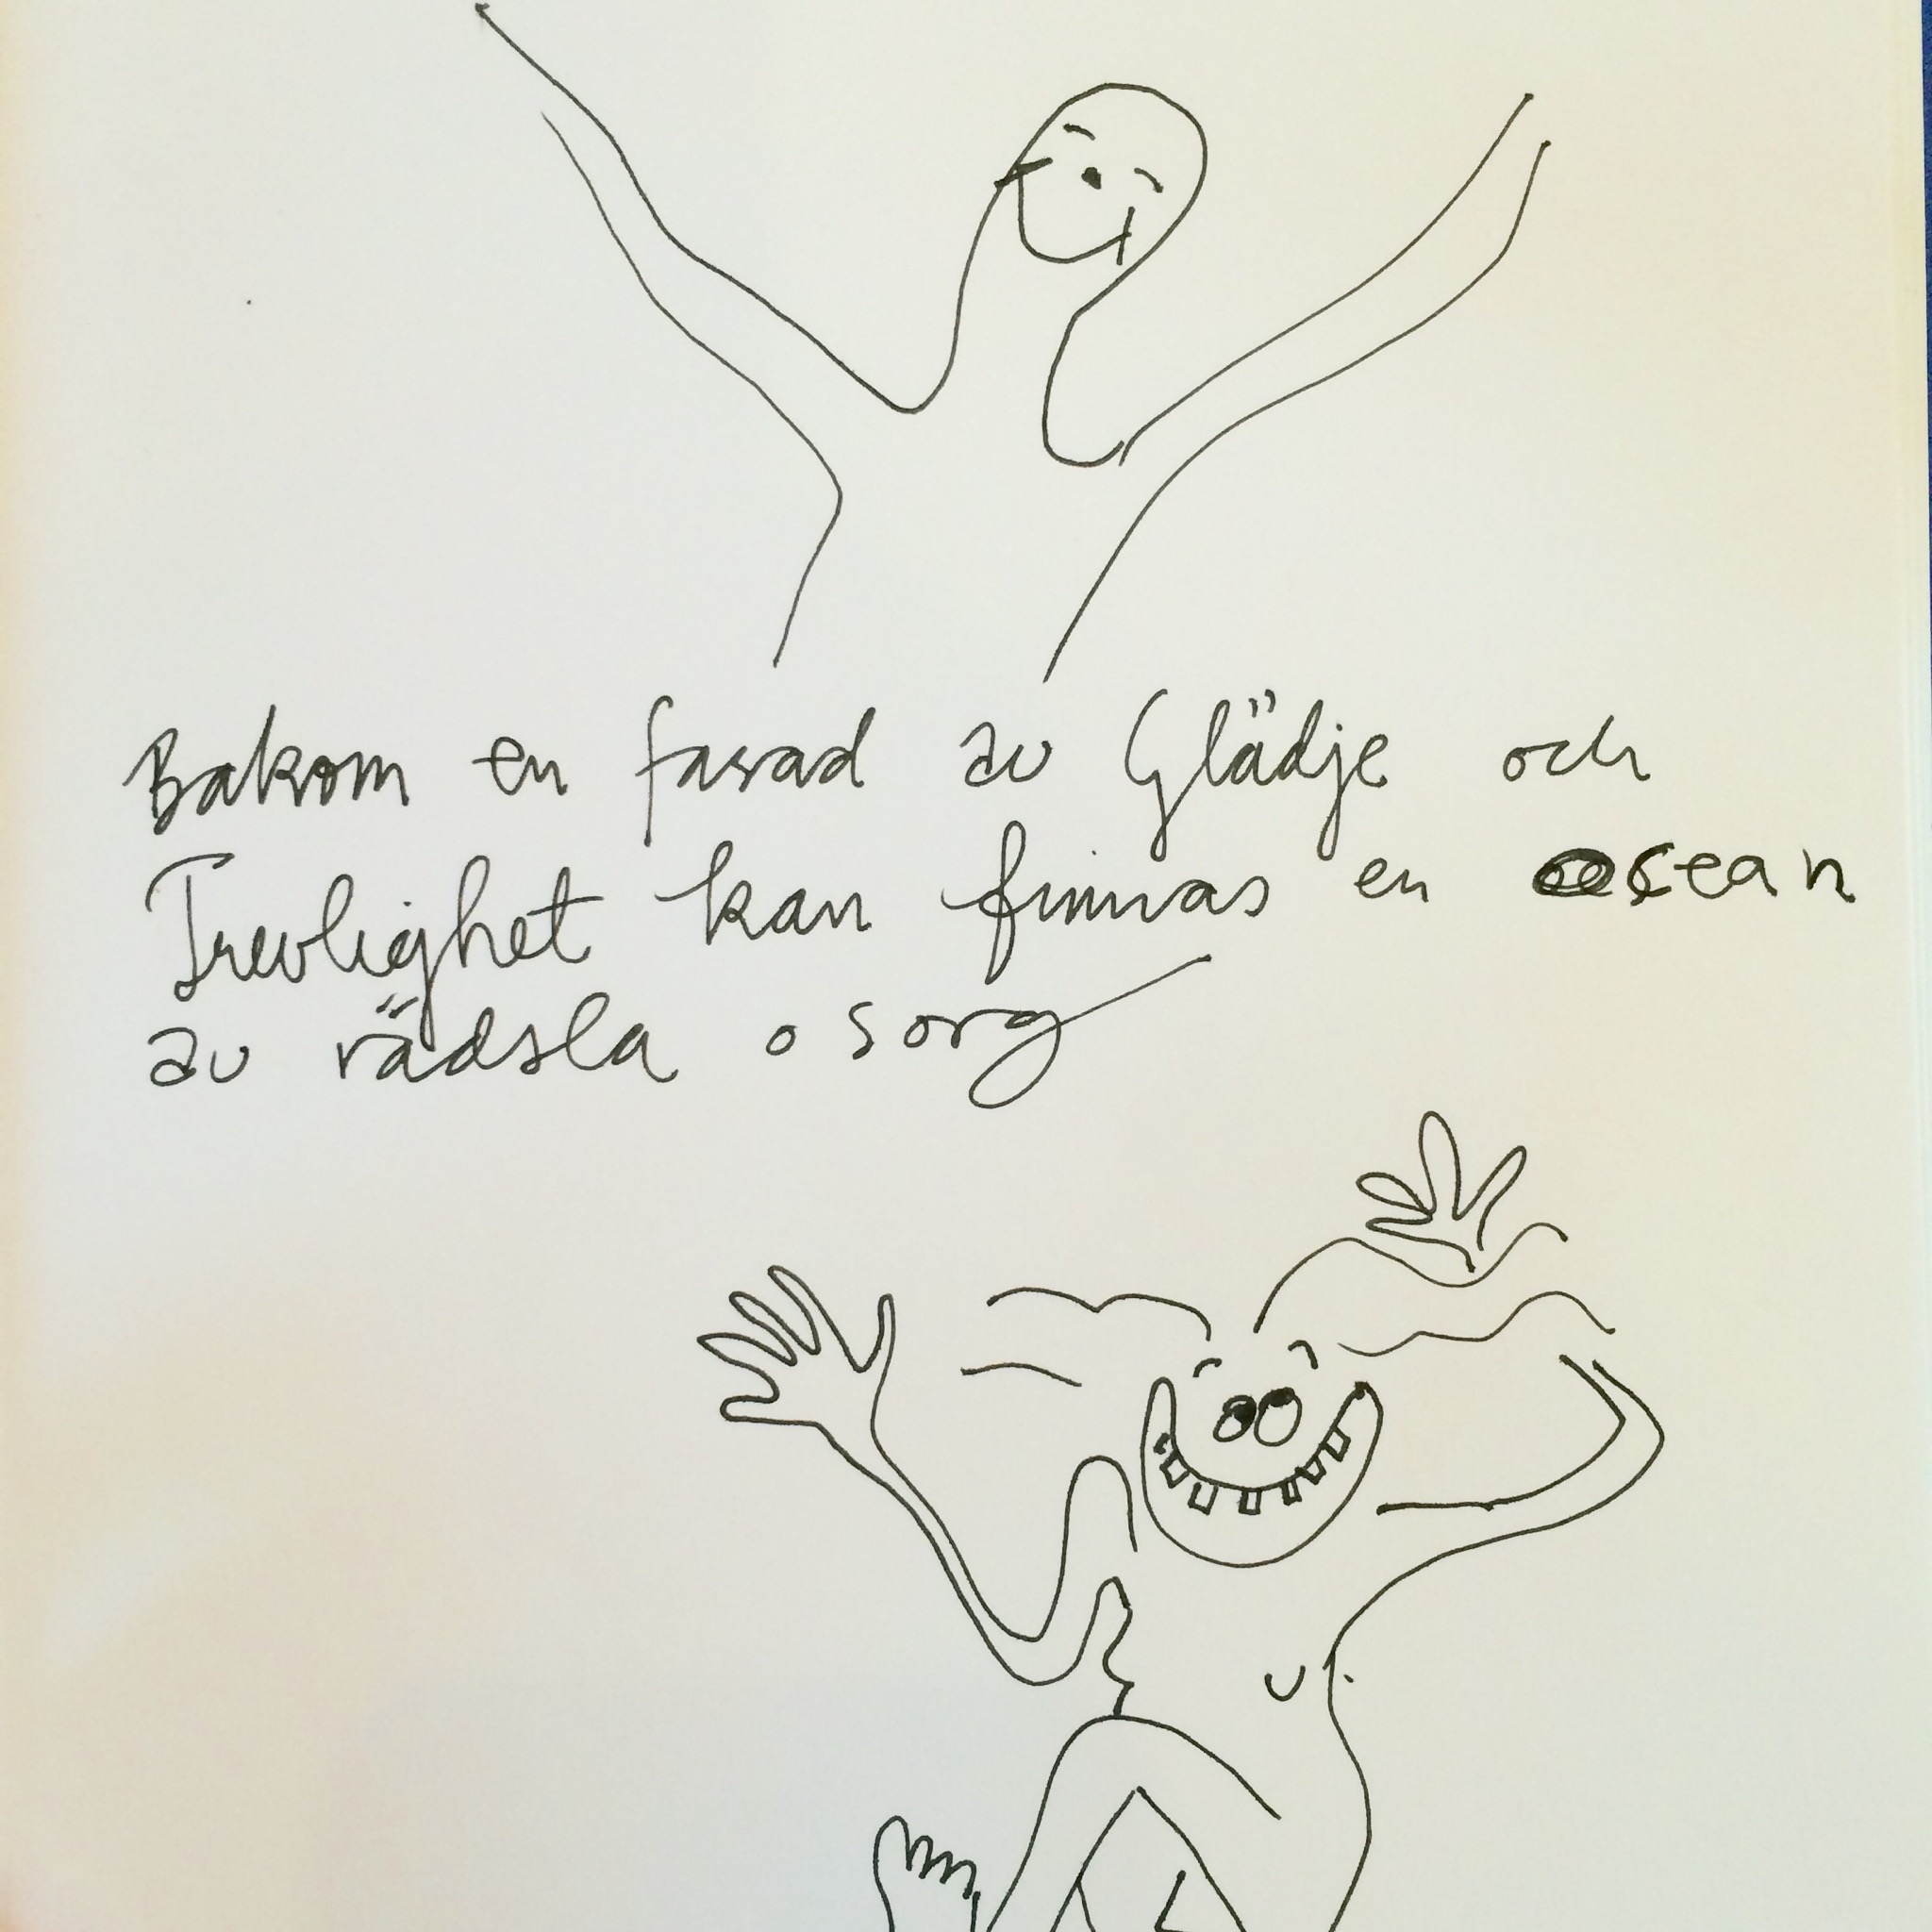 Bakom en fasad av Glädje och
Trevlighet kan finnas en ocean
av rädsla o sorg